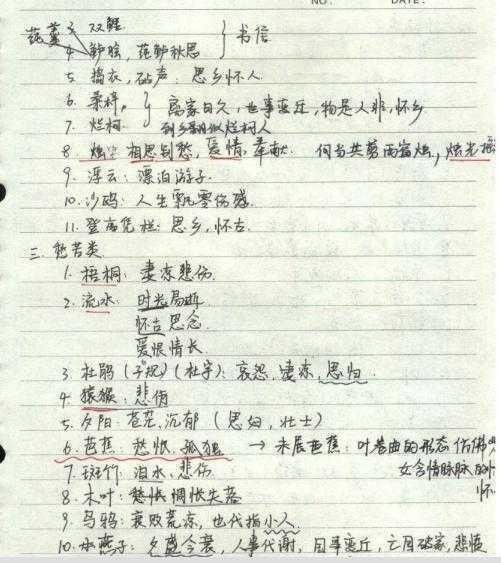 NO. DATE.
3 双鲤 } 书信
莼羹 4 鲈脍, 莼鲈秋思
5 捣衣, 砧声: 思乡怀人
6. 桑梓, } 离家日久, 世事变迁, 物是人非, 怀乡
7. 烂柯. 到乡翻似烂柯人
8 烛: 相思别愁, 爱情, 奉献. 何当共剪西窗烛,
9. 浮云: 漂泊游子.
10. 沙鸥: 人生飘零伤感
11. 登高凭栏: 思乡, 怀古
三. 愁苦类
1. 梧桐: 凄凉悲伤.
2. 流水: 时光易逝
怀古思念.
爱恨情长
3 杜鹃 (子规) (杜宇): 哀怨, 凄凉, 思归.
4 猿猴: 悲伤
5. 夕阳: 苍茫, 沉郁 (思妇, 壮士)
6. 芭蕉: 愁怅 孤独 → 未展芭蕉: 叶卷曲的形态仿佛
7. 斑竹: 泪水, 悲伤. 女含情脉脉的
8. 木叶: 愁怅惆怅失落 怀
9. 乌鸦: 衰败荒凉, 也代指小人.
10. 燕子: 夕盛今衰, 人事代谢, 国事变迁, 亡国破家, 悲愤